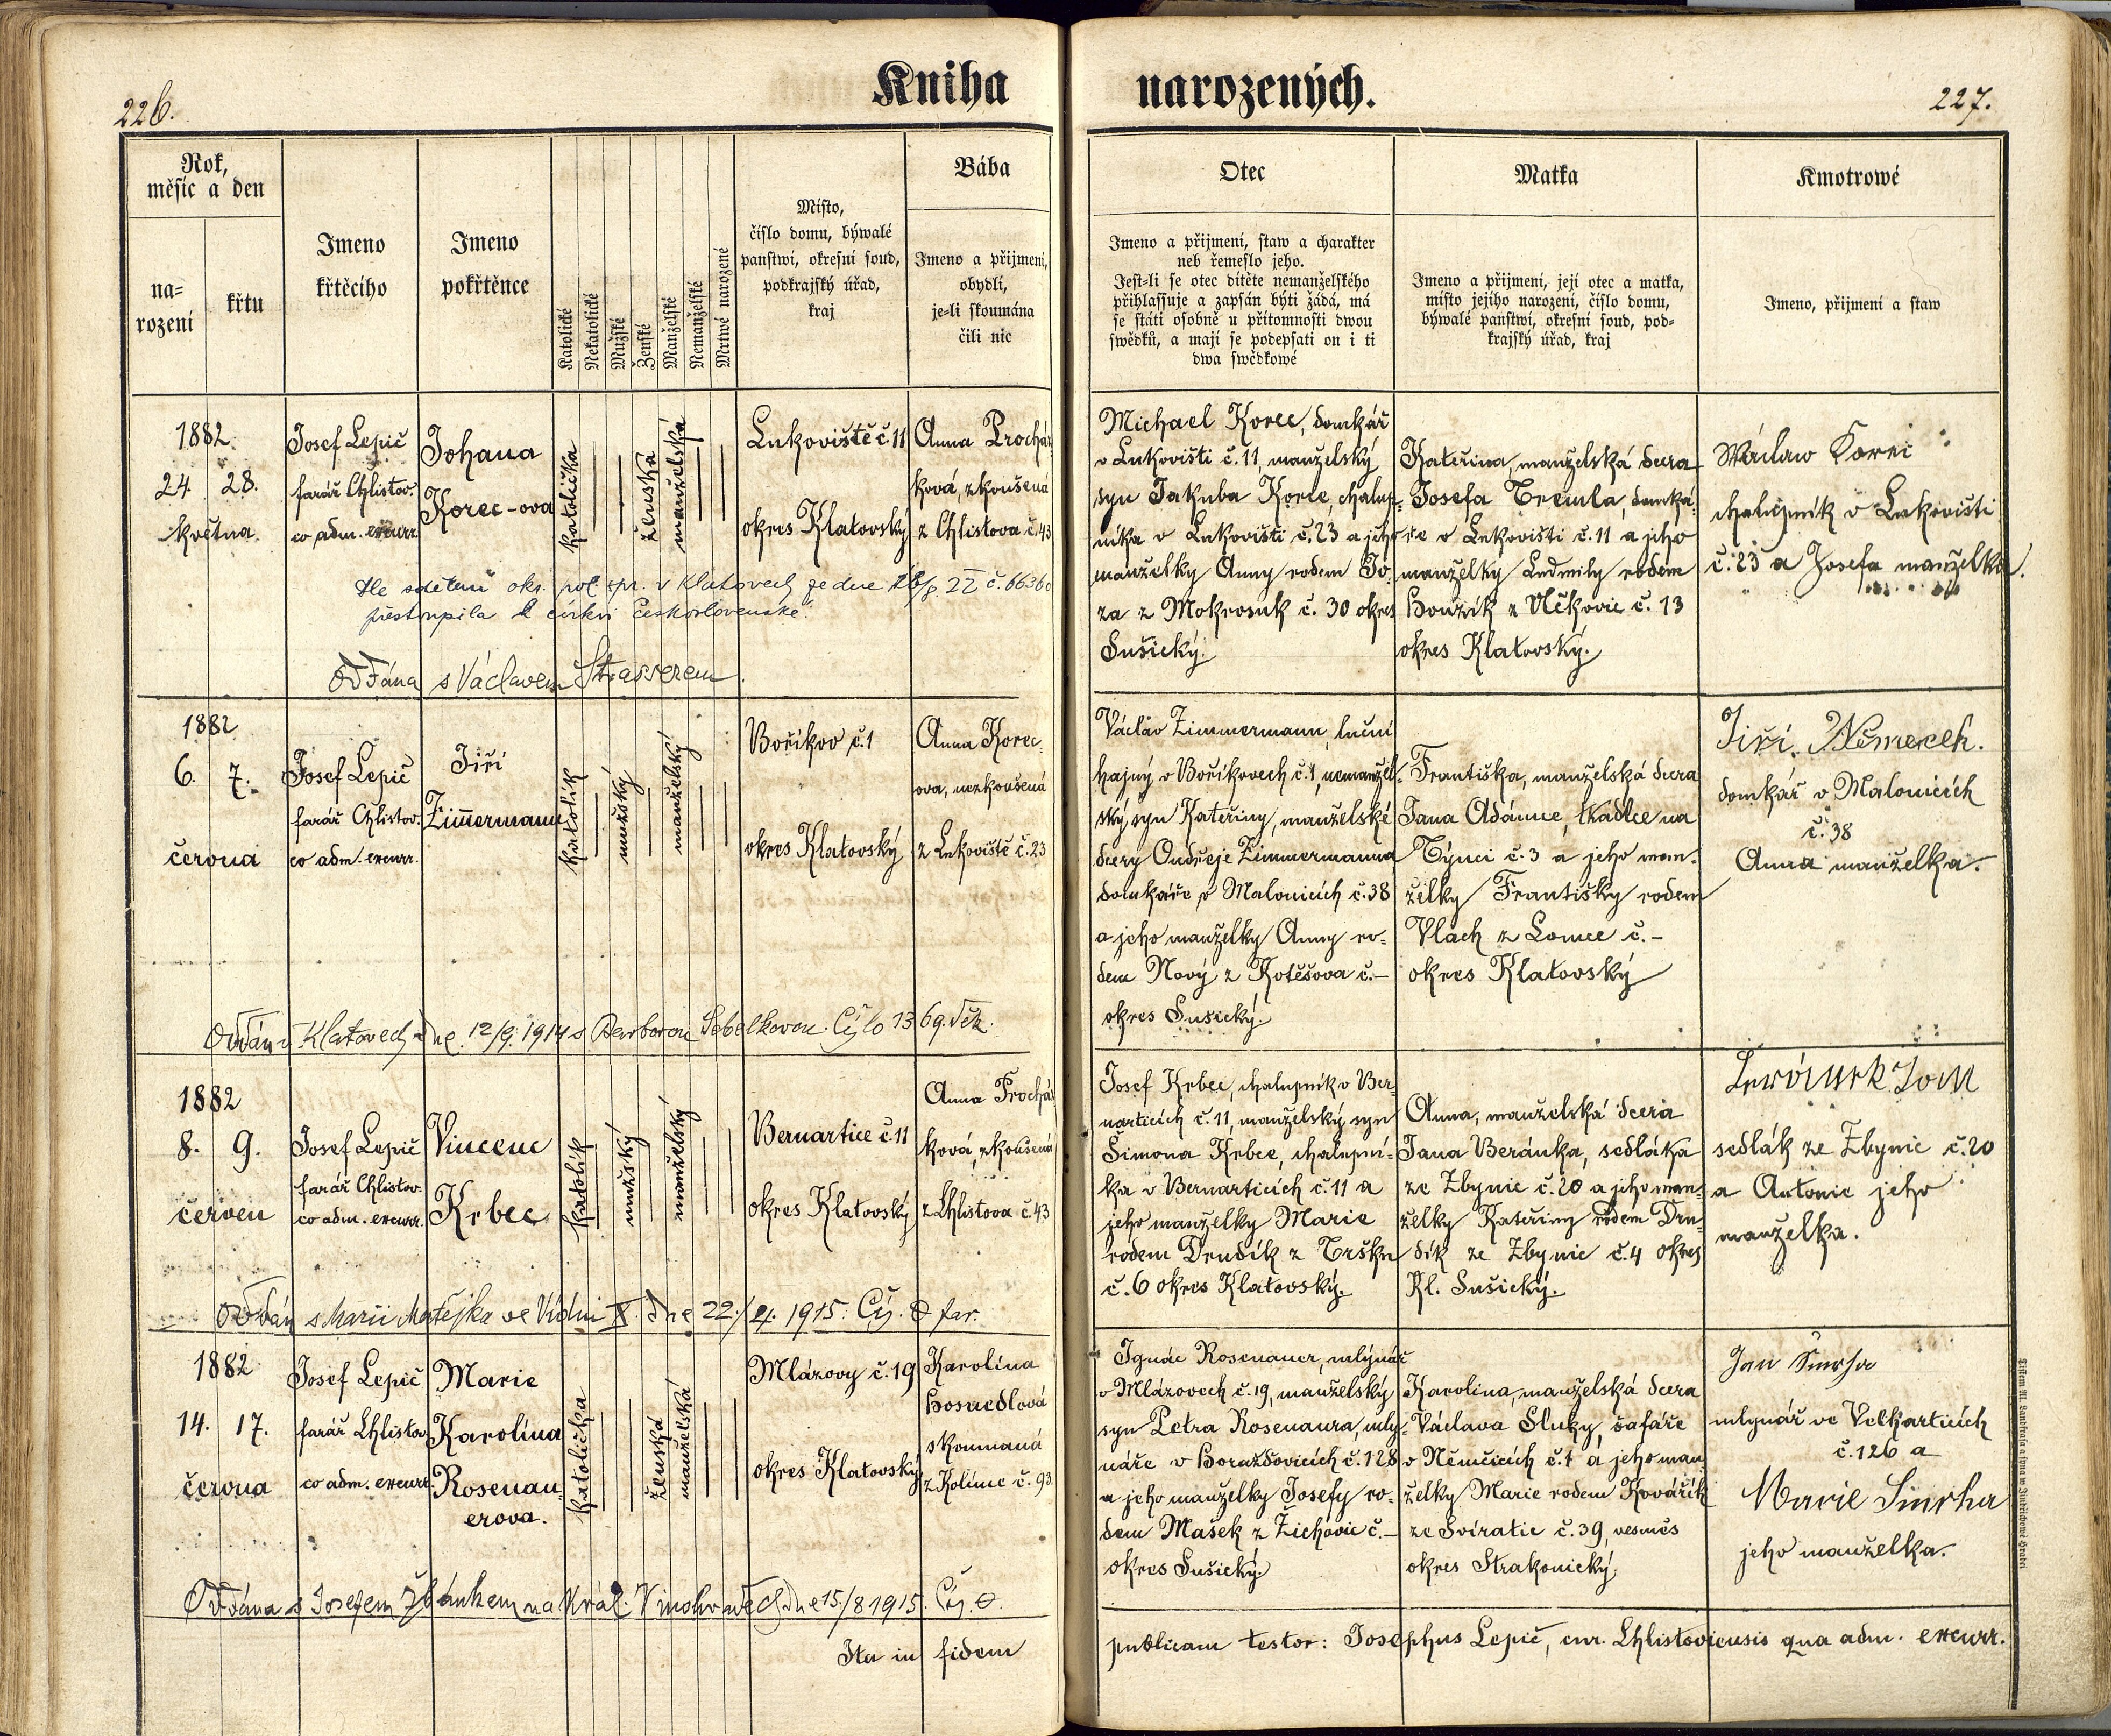 226.
Kniha
narozených.
227.
Rok,
měsíc a den
na=
rození
křtu
Jmeno
křtěcího
Jmeno
pokřtěnce
Katolické
Nekatolické
Mužské
Ženské
Manželské
Nemanželské
Mrtwě narozené
Místo,
číslo domu, býwalé
panstwí, okresní soud,
podkrajský úřad,
kraj
Bába
Jmeno a přijmení,
obydlí,
je=li skoumána
čili nic
Otec
Jmeno a přijmení, staw a charakter
neb řemeslo jeho.
Jest=li se otec dítěte nemanželského
přihlassuje a zapsán býti žádá, má
se státi osobně u přítomnosti dwou
swědků, a mají se podepsati on i ti
dwa swědkowé
Matka
Jmeno a přijmení, její otec a matka,
místo jejího narození, číslo domu,
býwalé panstwí, okresní soud, pod=
krajský úřad, kraj
Kmotrowé
Jmeno, přijmení a staw
1882.
24. 28.
května.
Josef Lepič
farář Chlistov.
co adm. excurr.
Johana
Korec-ova
katolička
ženská
manželská
Lukoviště č. 11
okres Klatovský
Anna Procház
ková, zkoušená
z Chlistova č. 43
Michael Korec, domkář
v Lukovišti č. 11, manželský
syn Jakuba Korce, chalup=
níka v Lukovišti č. 23 a jeho
manželky Anny rodem Jo
za z Mokrosuk č. 30 okres
Sušický.
Kateřina, manželská dcera
Josefa Tremla, domká
ře v Lukovišti č. 11 a jeho
manželky Ludmily rodem
Houzík z Vlčkovic č. 13
okres Klatovský.
Wáclaw Korec
chalupník v Lukovišti
č. 23 a Josefa manželka.
Dle sdělení okr. pol. spr. v Klatovech ze dne 22 č. 66360
přestoupila k církvi československé.
Oddána s Václavem Strasserem.
1882
6. 7.
června
Josef Lepič
farář Chlistov.
co adm. excurr.
Jiří
Zimmermann
katolík
mužský
manželský
Boříkov č. 1
okres Klatovský
Anna Korec=
ova, nezkoušená
z Lukoviště č. 23
Václav Zimmermann, luční
hajný v Boříkovech č. 1, nemanžel=
ský syn Kateřiny, manželské
dcery Ondřeje Zimmermanna
domkáře v Malonicích č. 38
a jeho manželky Anny ro=
dem Nový z Kotěšova č. –
okres Sušický.
Františka, manželská dcera
Jana Adámce, tkadlce na
Týnci č. 3 a jeho man=
želky Františky rodem
Vlach z Lomce č. –
okres Klatovský
Jiří Němeček.
domkář v Malonicích
č. 38
Anna manželka.
Oddán v Klatovech dne 12/9. 1914 s Barborou Sebelkovou. Čislo 1369. děk.
1882
8. 9.
červen
Josef Lepič
farář Chlistov.
co adm. excurr.
Vincenc
Krbec
katolík
mužský
manželský
Bernartice č. 11
okres Klatovský
Anna Procház
ková, zkoušená
z Chlistova č. 43
Josef Krbec, chalupník v Ber=
narticích č. 11, manželský syn
Šimona Krbce, chalupní=
ka v Bernarticích č. 11 a
jeho manželky Marie
rodem Drudík z Tržku
č. 6 okres Klatovský.
Anna, manželská dcera
Jana Beránka, sedláka
ze Zbynic č. 20 a jeho man=
želky Kateřiny rodem Dru=
dík ze Zbynic č. 4 okres
Kl. Sušický.
sedlák ze Zbynic č. 20
a Antonie jeho
manželka.
Oddán s Marií Matějka ve Vídni X. dne 22./4. 1915. Čj. far.
1882
14. 17.
června
Josef Lepič
farář Chlistov
co adm. excurr.
Marie
Karolina
Rosenau=
erova.
katolička
ženská
manželská
Mlázovy č. 19
okres Klatovský
Karolína
Hosnedlová
skoumaná
z Kolince č. 93.
Ignác Rosenauer, mlynář
v Mlázovech č. 19, manželský
syn Petra Rosenaura, mly=
náře v Horažďovicích č. 128
a jeho manželky Josefy ro=
dem Mašek z Žichovic č. –
okres Sušický.
Karolina, manželská dcera
Václava Sluky, šafáře
v Němčicích č. 1 a jeho man
želky Marie rodem Kovářík
ze Sviratic č. 39, vesměs
okres Strakonický.
Jan Smrha
mlynář ve Velkarticích
č. 126 a
Marie Smrha
jeho manželka.
Oddána s Josefem Zbánkem na Král. Vinohradech dne 15./8 1915. Čj.
Ita in fidem
publicam testor: Josephus Lepič, cur. Chlistoviensis qua adm. excurr.